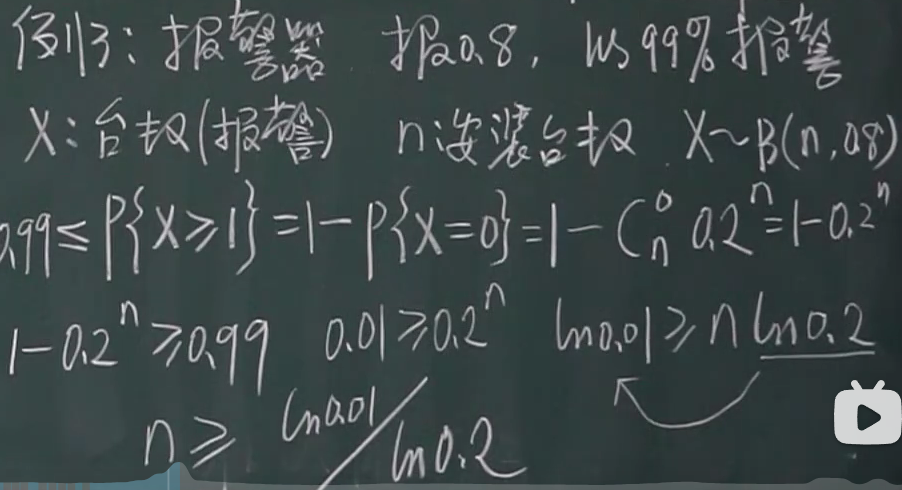 例13: 报警器 报0.8, 以99%报警
X:台数(报警) n:安装台数 X~B(n,0.8)
0.99≤P{X≥1}=1-P{X=0}=1-C_n^0 0.2^n=1-0.2^n
1-0.2^n≥0.99 0.01≥0.2^n ln0.01≥n ln0.2
n≥ ln0.01/ln0.2